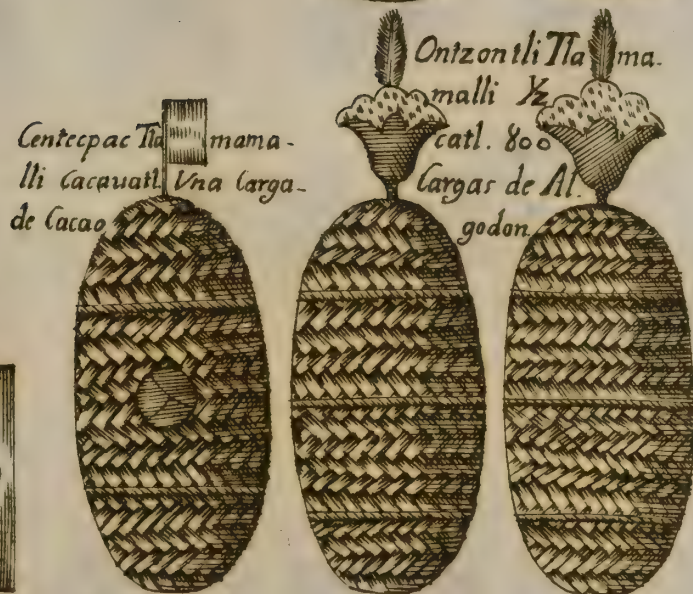 Centecpac Tlamama-
lli Cacauatl. Vna Carga-
de Cacao
Ontzontli Tlama-
malli Yz
catl. 800
Cargas de Al-
godon.